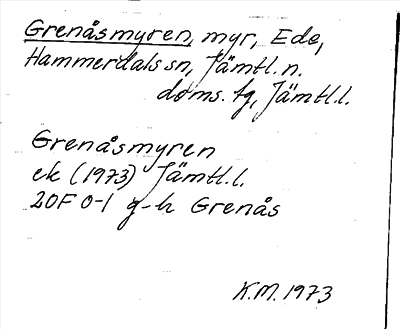 Grenåsmyren, myr, Ede,
Hammerdals sn, Jämtl. n.
doms. tg, Jämtl.l.
Grenåsmyren
ek (1973) Jämtl.l.
20F 0-1 g-h Grenås
K.M. 1973